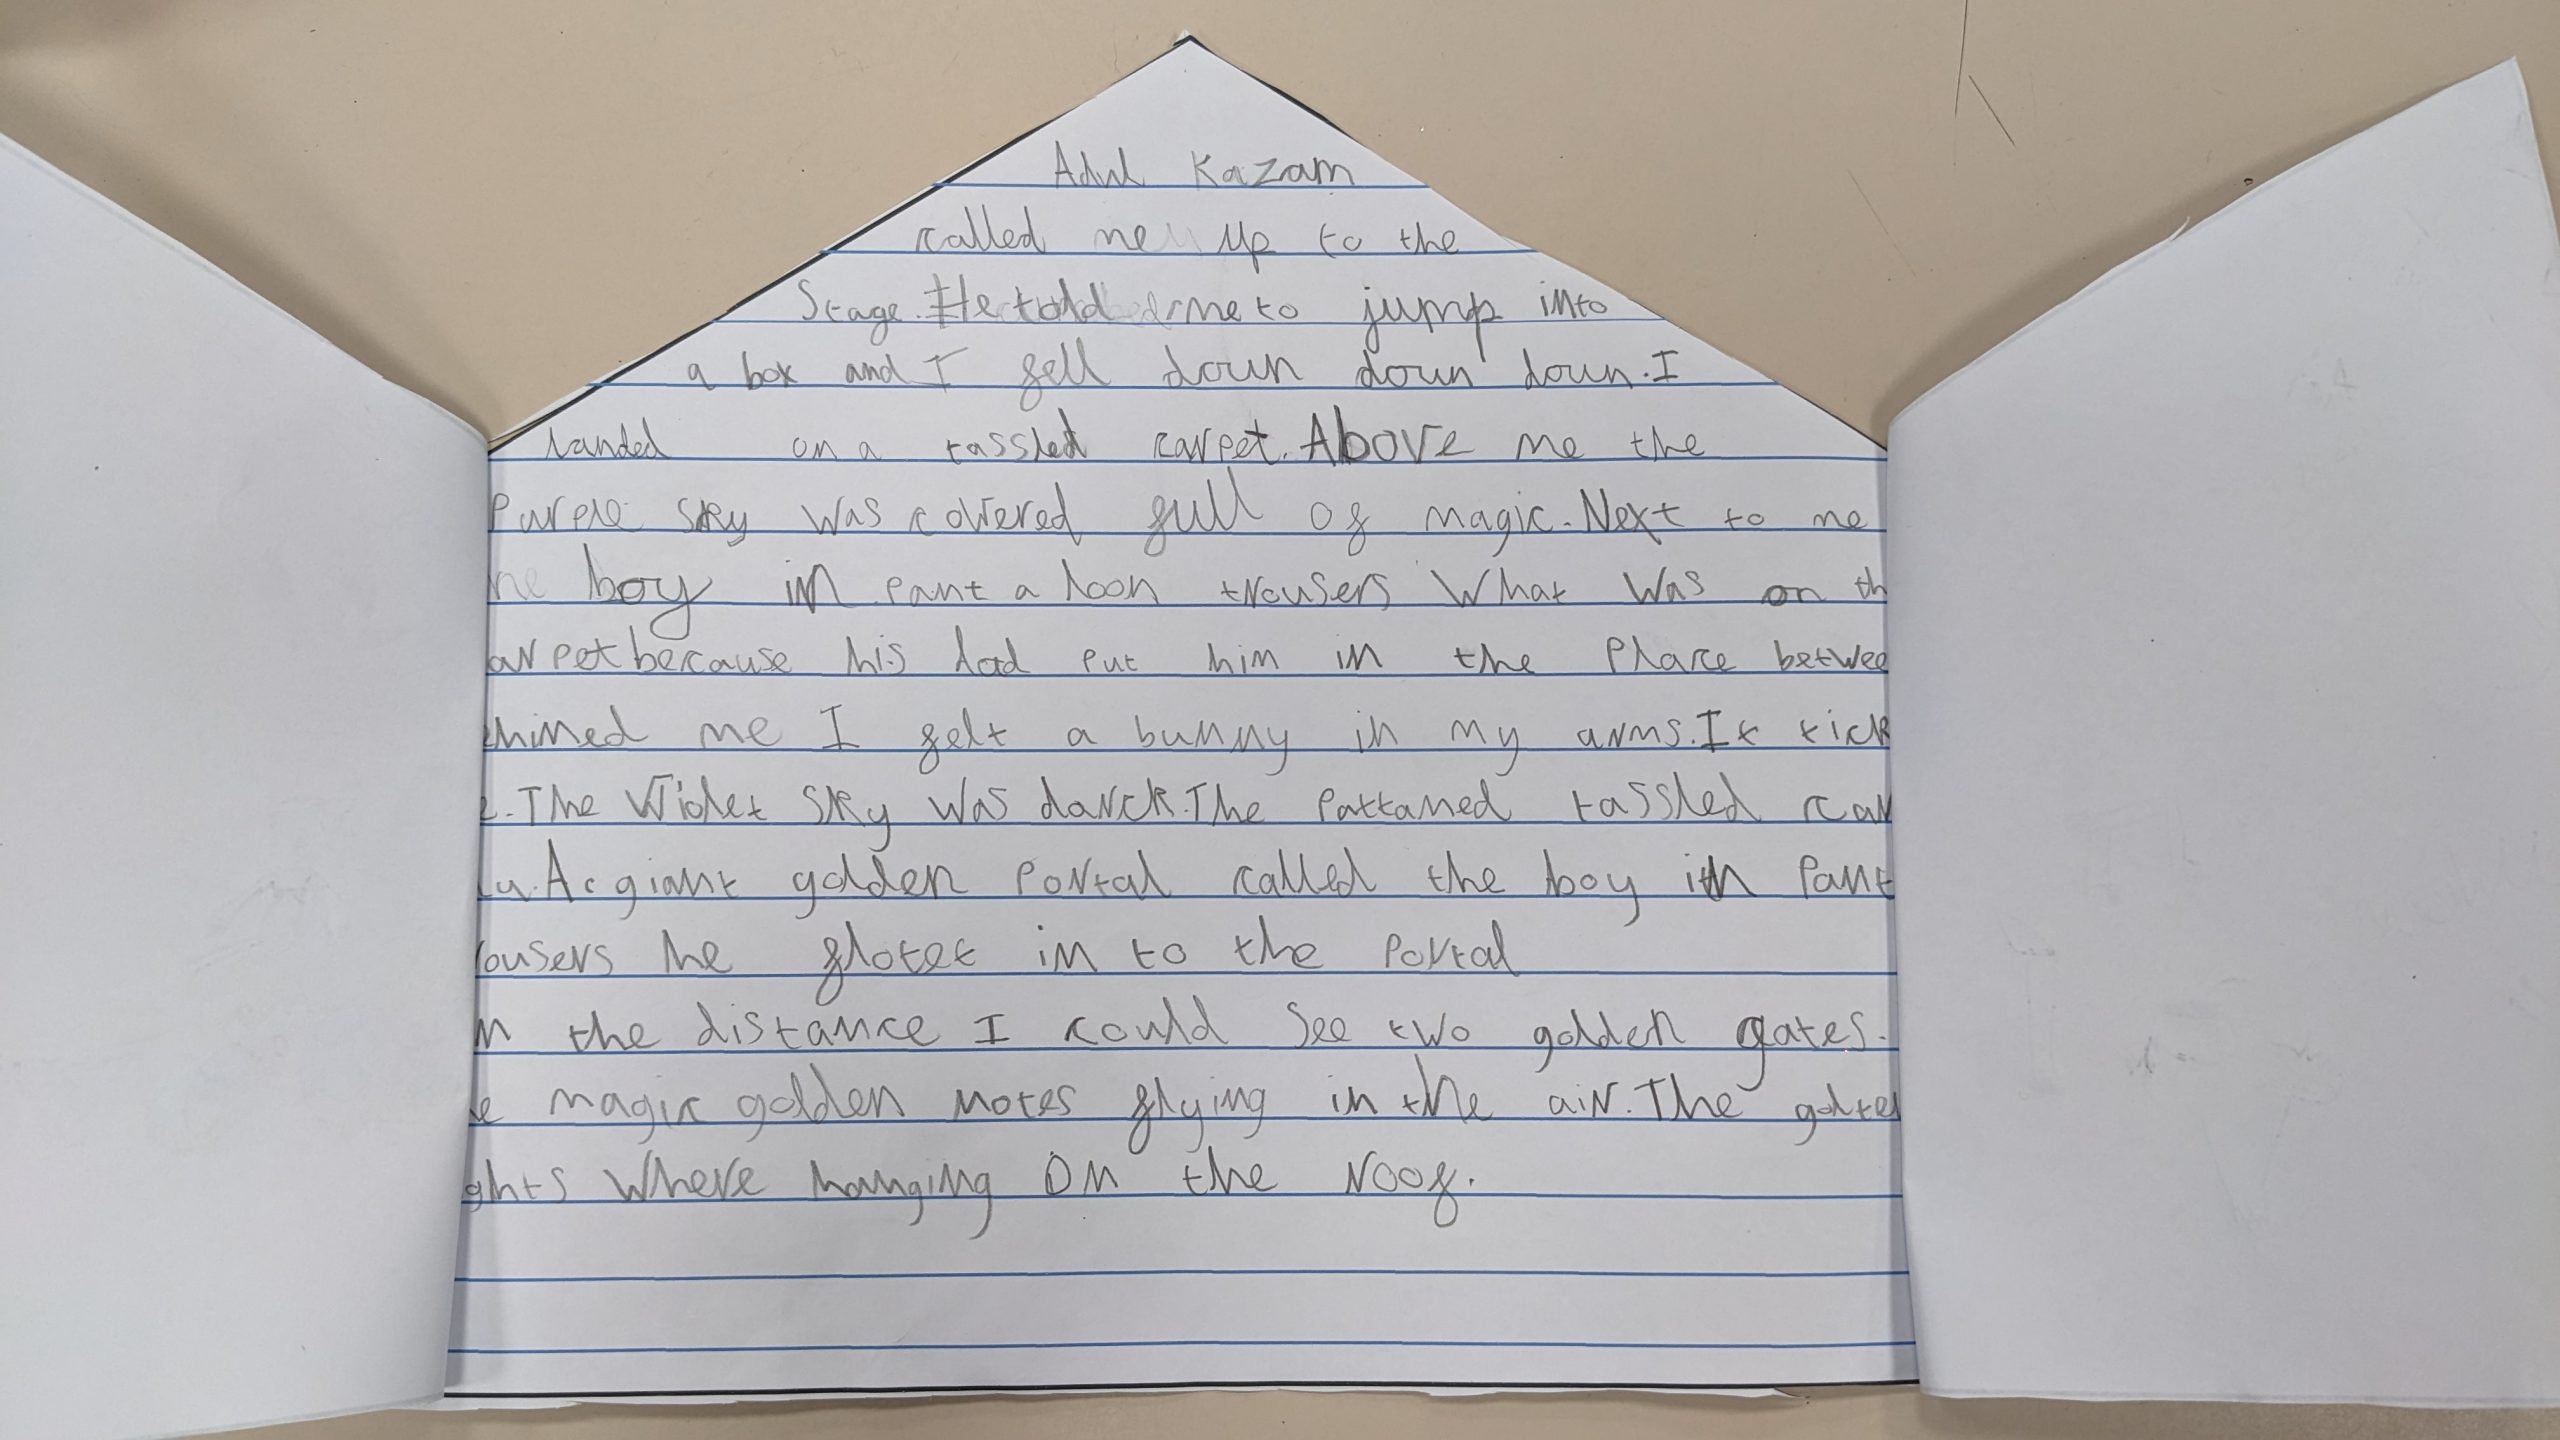 Adul Kazam
called me up to the
Stage. He told me to jump into
a box and I fell down down down. I
landed on a tassled carpet. Above me the
Purple sky was covered full of magic. Next to me
he boy in pant a loon trousers What was on th
arpet because his dad put him in the Place betwee
ehined me I felt a bunny in my arms. It tick
e. The Violet sky was darck. The Pattaned tassled car
u. A giant golden Portal called the boy in Pant
ousers he flotet in to the Portal
n the distance I could see two golden gates.
e magic golden notes flying in the air. The
ghts Where hanging on the roof.